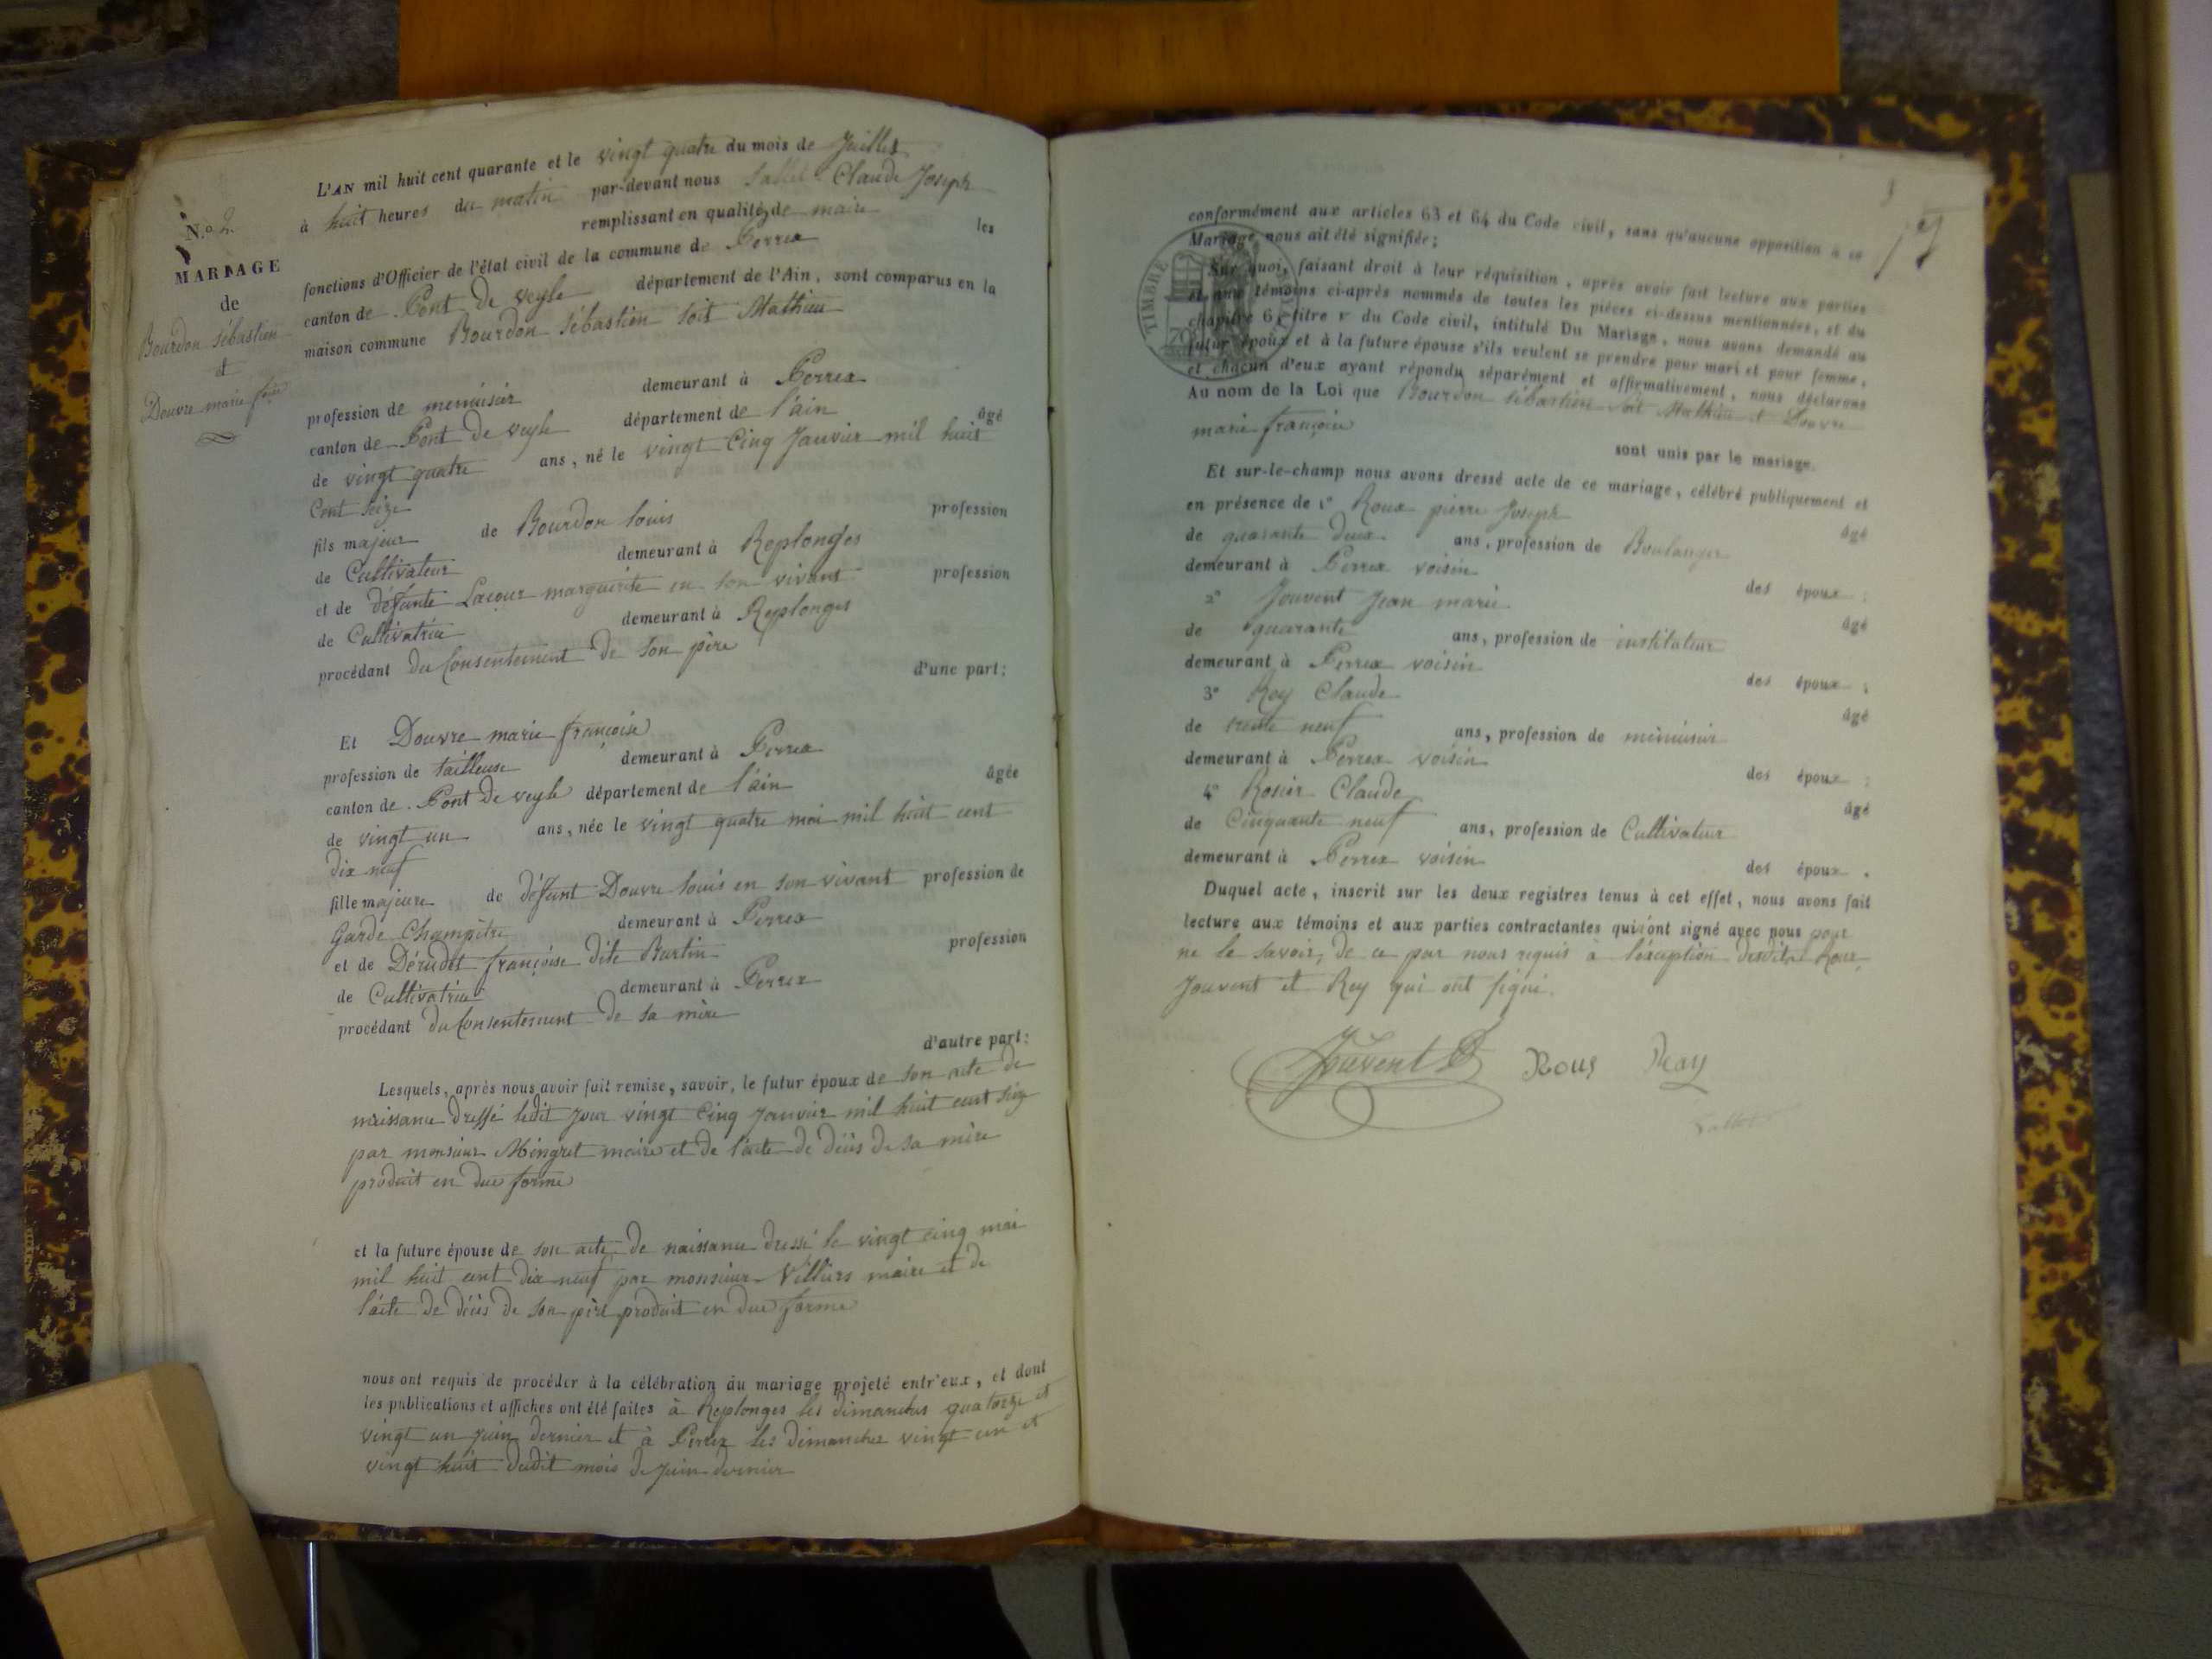 N.o 2.
MARIAGE
de
Bourdon Sébastien
et
Douvre marie
L'AN mil huit cent quarante et le vingt quatre du mois de Juillet
à huit heures du matin par-devant nous Claude Joseph
remplissant en qualité de maire les
fonctions d'Officier de l'état civil de la commune de Perrex
canton de Pont de veyle département de l'Ain, sont comparus en la
maison commune Bourdon Sébastien soit Mathieu
profession de menuisier demeurant à Perrex
canton de Pont de veyle département de l'ain âgé
de vingt quatre ans, né le vingt Cinq Janvier mil huit
Cent seize
fils majeur de Bourdon Louis profession
de Cultivateur demeurant à Replonges
et de défunte Lacour marguerite en son vivant profession
de Cultivatrice demeurant à Replonges
procédant du Consentement de son père
d'une part;
Et Douvre marie françoise
profession de tailleuse demeurant à Perrex
canton de Pont de veyle département de l'ain âgée
de vingt un ans, née le vingt quatre mai mil huit cent
dix neuf
fille majeure de défunt Douvre Louis en son vivant profession de
Garde Champêtre demeurant à Perrex
et de françoise dite profession
de Cultivatrice demeurant à Perrex
procédant du Consentement de sa mère
d'autre part;
Lesquels, après nous avoir fait remise, savoir, le futur époux de son acte de
naissance dressé ledit jour vingt Cinq Janvier mil huit cent seize
par monsieur Mingret maire et de l'acte de décès de sa mère
produit en due forme
et la future épouse de son acte de naissance dressé le vingt cinq mai
mil huit cent dix neuf par monsieur Villiers maire et de
l'acte de décès de son père produit en due forme
nous ont requis de procéder à la célébration du mariage projeté entr'eux, et dont
les publications et affiches ont été faites à Replonges les dimanches quatorze et
vingt un juin dernier et à Perrex les dimanches vingt un et
vingt huit dudit mois de juin dernier
conformément aux articles 63 et 64 du Code civil, sans qu'aucune opposition à ce
Mariage nous ait été signifiée;
TIMBRE
Sur quoi, faisant droit à leur réquisition, après avoir fait lecture aux parties
et aux témoins ci-après nommés de toutes les pièces ci-dessus mentionnées, et du
chapitre 6, titre v du Code civil, intitulé Du Mariage, nous avons demandé au
futur époux et à la future épouse s'ils veulent se prendre pour mari et pour femme,
et chacun d'eux ayant répondu séparément et affirmativement, nous déclarons
Au nom de la Loi que Bourdon Sébastien soit Mathieu et Douvre
marie françoise
sont unis par le mariage.
Et sur-le-champ nous avons dressé acte de ce mariage, célébré publiquement et
en présence de 1° Roux pierre Joseph
âgé
de quarante deux ans, profession de Boulanger
demeurant à Perrex voisin
des époux;
2° Jouvent Jean marie
âgé
de quarante ans, profession de instituteur
demeurant à Perrex voisin
des époux;
3° Rey Claude
âgé
de trente neuf ans, profession de menuisier
demeurant à Perrex voisin
des époux;
4° Rosier Claude
âgé
de Cinquante neuf ans, profession de Cultivateur
demeurant à Perrex voisin
des époux.
Duquel acte, inscrit sur les deux registres tenus à cet effet, nous avons fait
lecture aux témoins et aux parties contractantes qui n'ont signé avec nous pour
ne le savoir, de ce par nous requis à l'éxception desdits Roux,
Jouvent et Rey qui ont signé.
Jouvent Roux Rey